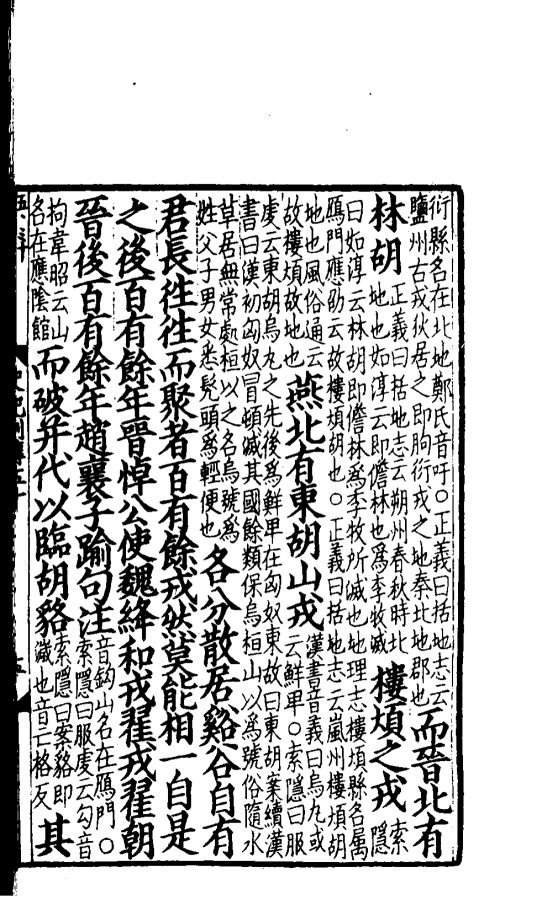 衍縣名在北地鄭氏音吁○正義曰括地志云
鹽州古戎狄居之即朐衍戎之地秦北地郡也
而晉北有
林胡
正義曰括地志云朔州春秋時北
地也如淳云即儋林也爲李牧滅
樓煩之戎
索
隱
曰如淳云林胡即儋林爲李牧所滅也地理志樓煩縣名属
鴈門應劭云故樓煩胡也○正義曰括地志云嵐州樓煩胡
地也風俗通云
故樓煩故地也
燕北有東胡山戎
漢書音義曰烏丸或
云鮮卑○索隱曰服
虔云東胡烏丸之先後爲鮮卑在匈奴東故曰東胡案續漢
書曰漢初匈奴冒頓滅其國餘類保烏桓山以爲號俗隨水
草居無常處桓以之名烏號爲
姓父子男女悉髡頭爲輕便也
各分散居谿谷自有
君長往往而聚者百有餘戎然莫能相一自是
之後百有餘年晉悼公使魏絳和戎翟戎翟朝
晉後百有餘年趙襄子踰句注
音鉤山名在鴈門○
索隱曰服虔云勾音
拘韋昭云山
名在應陰館
而破并代以臨胡貉
索隱曰案貉即
濊也音亡格反
其